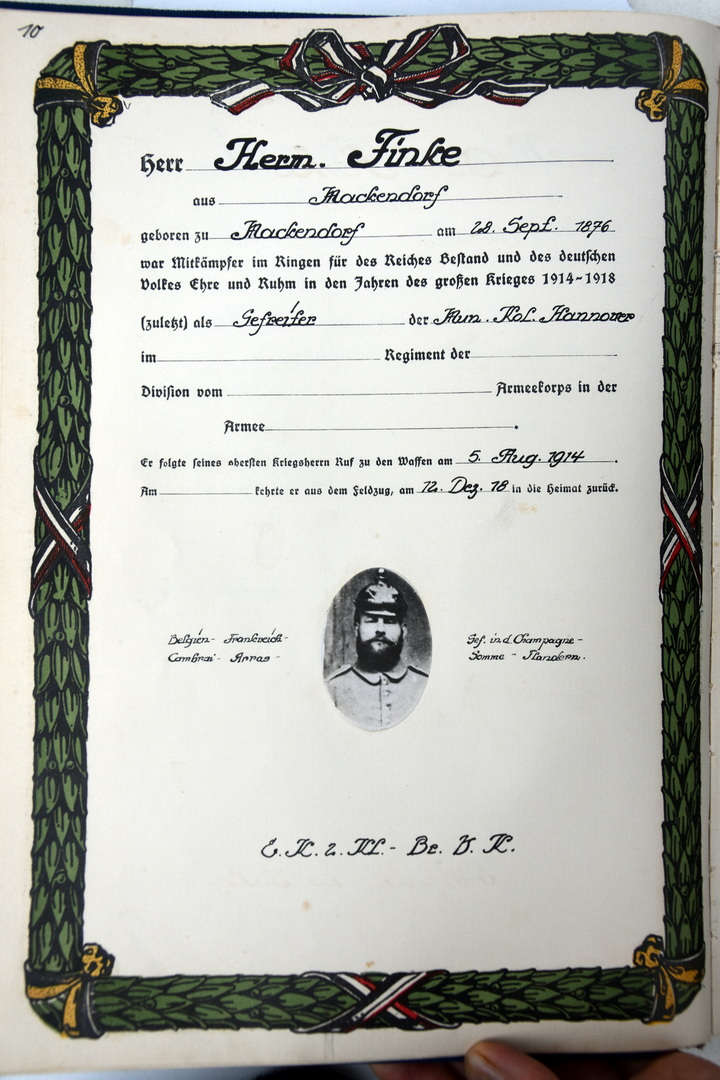 10
Herr Herm. Finke
aus Mackendorf
geboren zu Mackendorf am 28. Sept. 1876
war Mitkämpfer im Ringen für des Reiches Bestand und des deutschen
Volkes Ehre und Ruhm in den Jahren des großen Krieges 1914-1918
(zuletzt) als Gefreiter der Mun. Kol. Hannover
im Regiment der
Division vom Armeekorps in der
Armee .
Er folgte seines obersten Kriegsherrn Ruf zu den Waffen am 5. Aug. 1914 .
Am kehrte er aus dem Feldzug, am 12. Dez. 18 in die Heimat zurück.
Belgien - Frankreich -
Cambrai - Arras -
Gef. in d. Champagne -
Somme - Flandern.
E. K. 2. Kl. - Br. V. K.